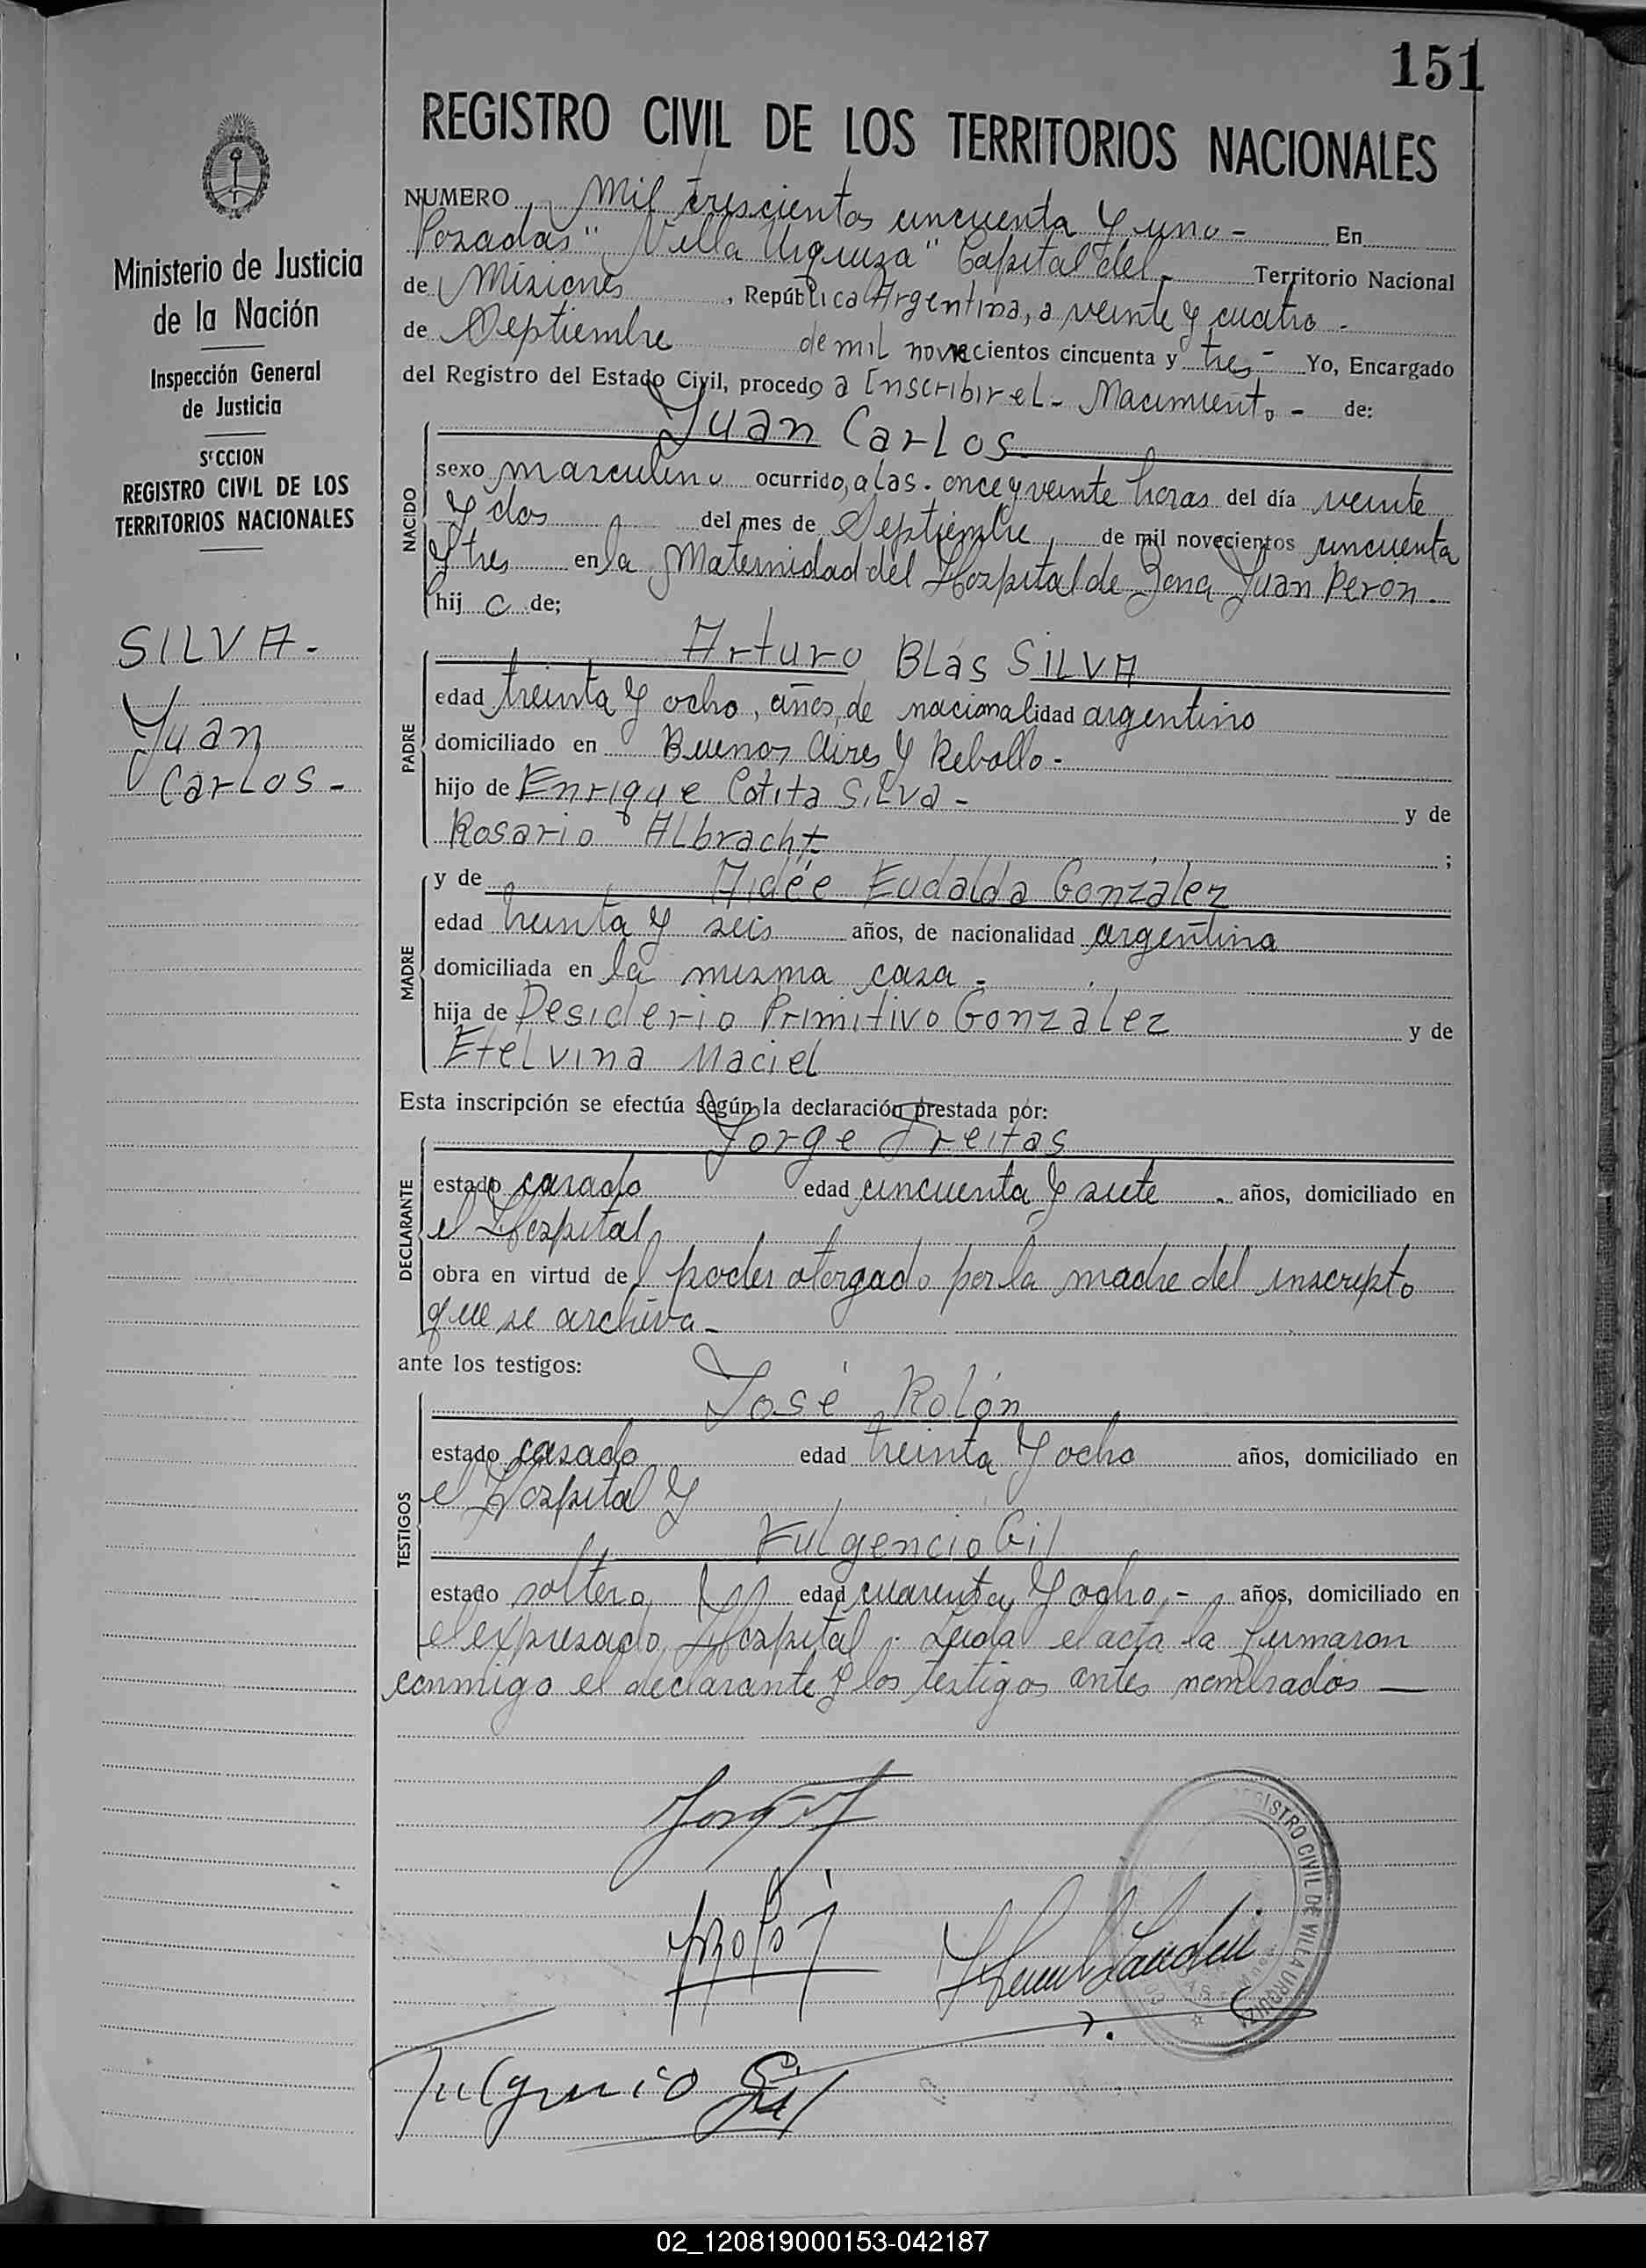 151
REGISTRO CIVIL DE LOS TERRITORIOS NACIONALES
Ministerio de Justicia
de la Nación
Inspección General
de Justicia
SECCION
REGISTRO CIVIL DE LOS
TERRITORIOS NACIONALES
SILVA.-
Juan
Carlos-
NUMERO Mil trescientos cincuenta y uno- En
Posadas "Villa Urquiza" Capital del- Territorio Nacional
de Misiones, República Argentina, a veinte y cuatro-
de Septiembre de mil novecientos cincuenta y tres- Yo, Encargado
del Registro del Estado Civil, procedo a Inscribir el- Nacimiento- de:
Juan Carlos
NACIDO
sexo masculino ocurrido, a las. once y veinte horas del día veinte
y dos del mes de Septiembre, de mil novecientos cincuenta
y tres en la Maternidad del Hospital de Zona Juan Peron.-
hij o de;
PADRE
Arturo Blas SILVA
edad treinta y ocho, años, de nacionalidad argentino
domiciliado en Buenos Aires y Rebollo-
hijo de Enrique Silva- y de
Rosario Albracht;
MADRE
y de Aidée Eudalda Gonzalez
edad treinta y seis años, de nacionalidad argentina
domiciliada en la misma casa-
hija de Desiderio Primitivo Gonzalez y de
Etelvina Maciel
Esta inscripción se efectúa según la declaración prestada por:
DECLARANTE
Jorge Freitas
estado casado edad cincuenta y siete. años, domiciliado en
el Hospital
obra en virtud del poder otorgado por la madre del inscripto
que se archiva-
ante los testigos:
TESTIGOS
José Rolón
estado casado edad treinta y ocho años, domiciliado en
el Hospital y
Fulgencio Gil
estado soltero edad cuarenta y ocho,- años, domiciliado en
el expresado Hospital. Leida el acta la firmaron
conmigo el declarante y los testigos antes nombrados —
REGISTRO CIVIL DE VILLA URQUIZA
Fulgencio Gil
02_120819000153-042187